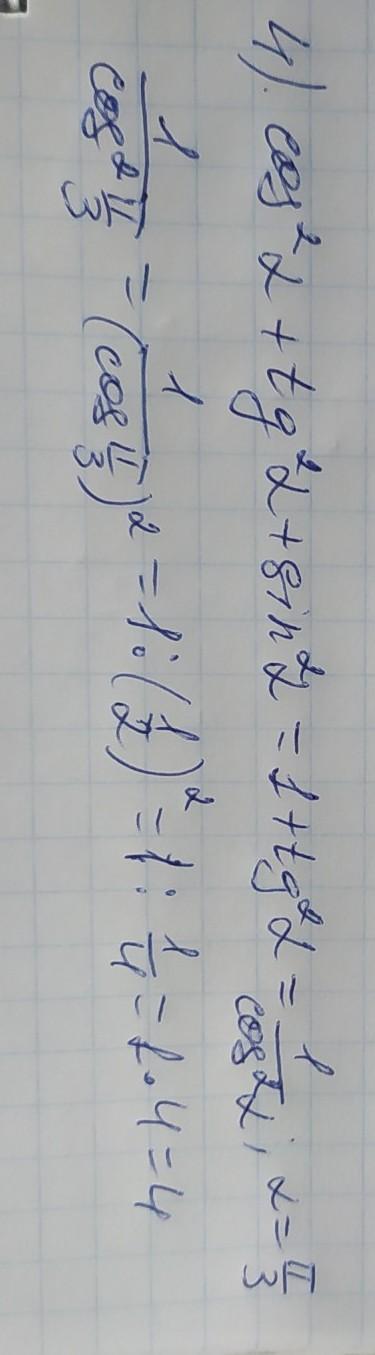 4). cos²α + tg²α + sin²α = 1 + tg²α = 1/cos²α; α = π/3
1/cos² π/3 = 1/(cos π/3)² = 1 : (1/2)² = 1 : 1/4 = 1 · 4 = 4